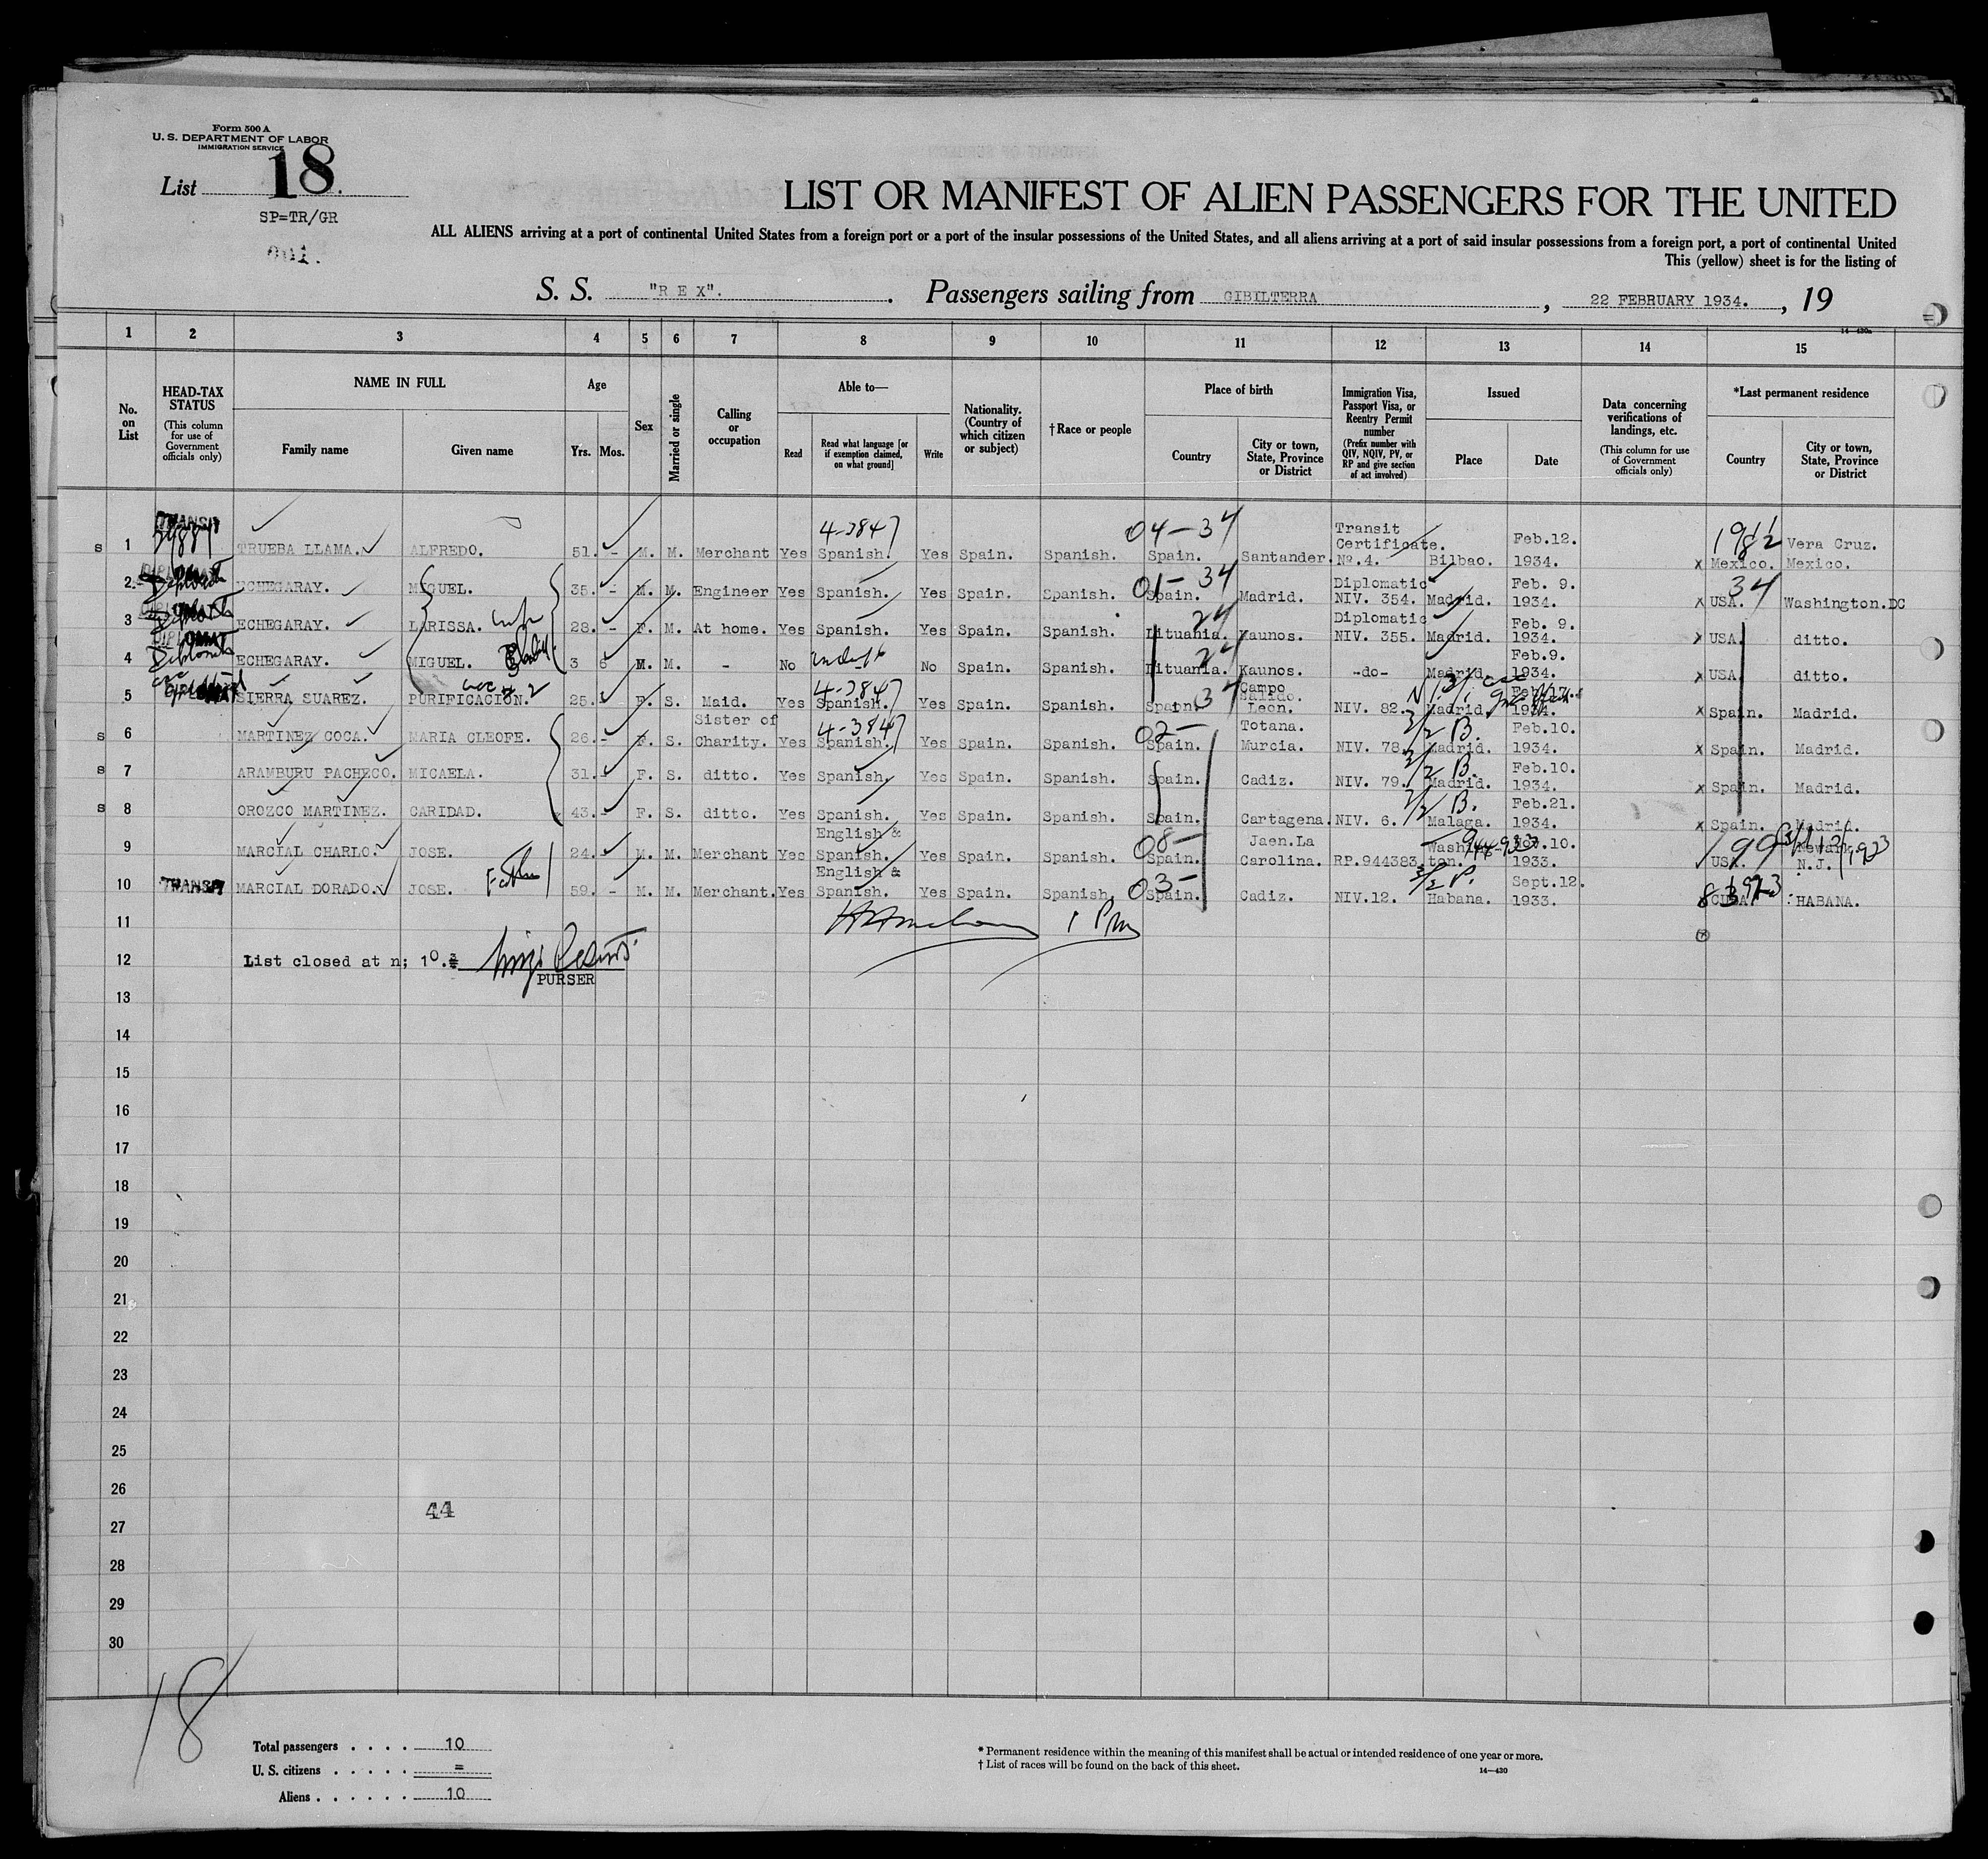 Form 500 A
U. S. DEPARTMENT OF LABOR
IMMIGRATION SERVICE
List 18.
SP=TR/GR
LIST OR MANIFEST OF ALIEN PASSENGERS FOR THE UNITED
ALL ALIENS arriving at a port of continental United States from a foreign port or a port of the insular possessions of the United States, and all aliens arriving at a port of said insular possessions from a foreign port, a port of continental United
This (yellow) sheet is for the listing of
S. S. "R E X". Passengers sailing from GIBILTERRA, 22 FEBRUARY 1934., 19
14—430a
1 2 3 4 5 6 7 8 9 10 11 12 13 14 15
No. on List
HEAD-TAX STATUS
(This column for use of Government officials only)
NAME IN FULL
Family name
Given name
Age
Yrs. Mos.
Sex
Married or single
Calling or occupation
Able to—
Read
Read what language [or if exemption claimed, on what ground]
Write
Nationality. (Country of which citizen or subject)
†Race or people
Place of birth
Country
City or town, State, Province or District
Immigration Visa, Passport Visa, or Reentry Permit number
(Prefix number with QIV, NQIV, PV, or RP and give section of act involved)
Issued
Place
Date
Data concerning verifications of landings, etc.
(This column for use of Government officials only)
*Last permanent residence
Country
City or town, State, Province or District
s 1 TRANSIT TRUEBA LLAMA. ALFREDO. 51. - M. M. Merchant Yes 4-3847 Spanish. Yes Spain. Spanish. 04-34 Spain. Santander. Transit Certificate. Nº.4. Bilbao. Feb.12. 1934. x Mexico. Vera Cruz. Mexico.
2 DIPLOMAT ECHEGARAY. MIGUEL. 35. - M. M. Engineer Yes Spanish. Yes Spain. Spanish. 01-34 Spain. Madrid. Diplomatic NIV. 354. Madrid. Feb. 9. 1934. x 34 USA. Washington.DC
3 DIPLOMAT ECHEGARAY. LARISSA. wife 28. - F. M. At home. Yes Spanish. Yes Spain. Spanish. 24 Lituania. Kaunos. Diplomatic NIV. 355. Madrid. Feb. 9. 1934. x USA. ditto.
4 DIPLOMAT ECHEGARAY. MIGUEL. 3 6 M. M. - No No Spain. Spanish. 24 Lituania. Kaunos. -do- Madrid. Feb.9. 1934. x USA. ditto.
5 SIERRA SUAREZ. PURIFICACION. 25. - F. S. Maid. Yes 4-3847 Spanish. Yes Spain. Spanish. 34 Spain. Campo Salido. Leon. NIV. 82. Madrid. Feb.17. 1934. x Spain. Madrid.
s 6 MARTINEZ COCA. MARIA CLEOFE. 26. - F. S. Sister of Charity. Yes 4-3847 Spanish. Yes Spain. Spanish. 02- Spain. Totana. Murcia. NIV. 78. Madrid. Feb.10. 1934. x Spain. Madrid.
s 7 ARAMBURU PACHECO. MICAELA. 31. - F. S. ditto. Yes Spanish. Yes Spain. Spanish. Spain. Cadiz. NIV. 79. Madrid. Feb.10. 1934. x Spain. Madrid.
s 8 OROZCO MARTINEZ. CARIDAD. 43. - F. S. ditto. Yes Spanish. Yes Spain. Spanish. Spain. Cartagena. NIV. 6. Malaga. Feb.21. 1934. x Spain. Madrid.
9 MARCIAL CHARLO. JOSE. 24. - M. M. Merchant Yes English & Spanish. Yes Spain. Spanish. 08- Spain. Jaen.La Carolina. RP.944383. Washington. 10. 1933. USA. Newark N.J. 1923
10 TRANSIT MARCIAL DORADO. JOSE. Father 59. - M. M. Merchant. Yes English & Spanish. Yes Spain. Spanish. 03- Spain. Cadiz. NIV.12. Habana. Sept.12. 1933. CUBA. HABANA.
11
12 List closed at n; 10.
PURSER
13
14
15
16
17
18
19
20
21
22
23
24
25
26
44
27
28
29
30
18
Total passengers . . . . 10
U. S. citizens . . . . . =
Aliens . . . . . . 10
* Permanent residence within the meaning of this manifest shall be actual or intended residence of one year or more.
† List of races will be found on the back of this sheet.
14—430